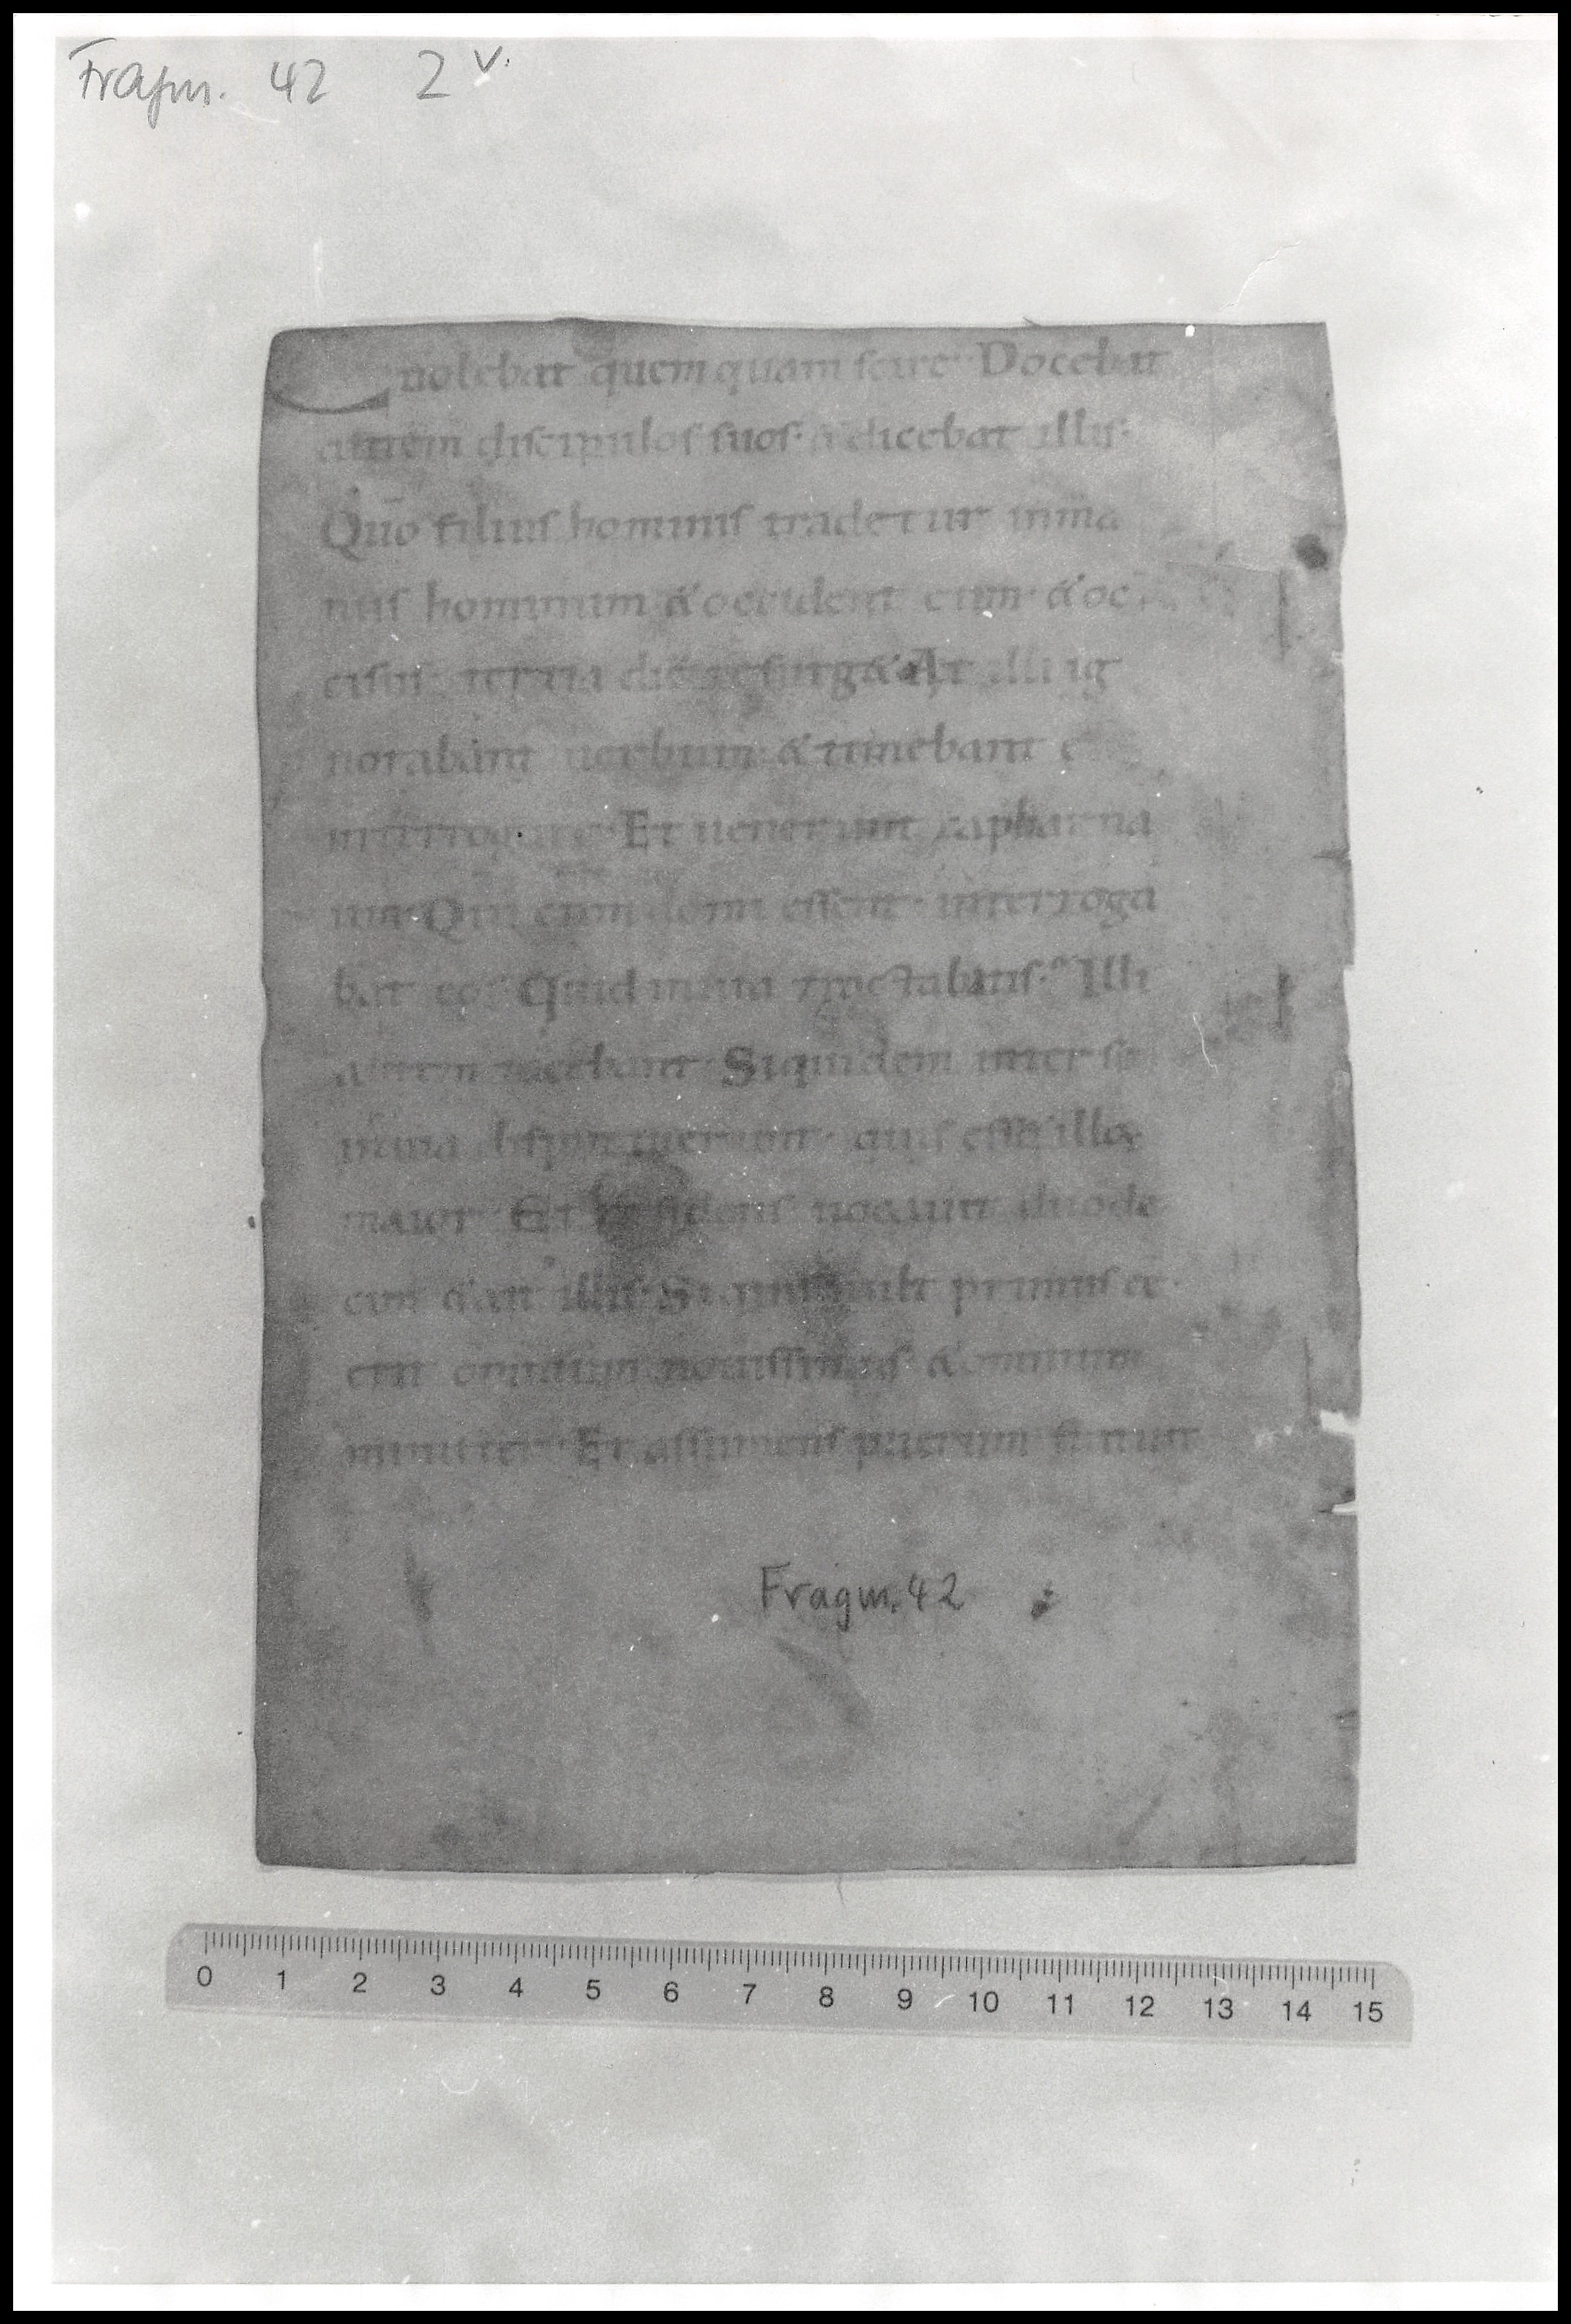 Fragm. 42 2 v.
nolebat quemquam scire Docebat
autem discipulos suos· & dicebat illis·
Qu̅o filius hominis tradetur inma
nus hominum &occident eum· &oc
cisus tertia die resurg& At illi ig
norabant uerbum· &timebant e
interrogare· Et uenerunt capharna
um· Qui cum domi essent· interroga
bat eos Quid inuia tractabatis· Illi
autem tacebant· Siquidem inter se
inuia disputauerunt· quis ess& illoꝝ
maior Et residens uocauit duode
cim &ait illis· Si quis uult primus ee̅·
erit omnium nouissimus &omnium
minister· Et assumens puerum statuit
Fragm. 42
0 1 2 3 4 5 6 7 8 9 10 11 12 13 14 15